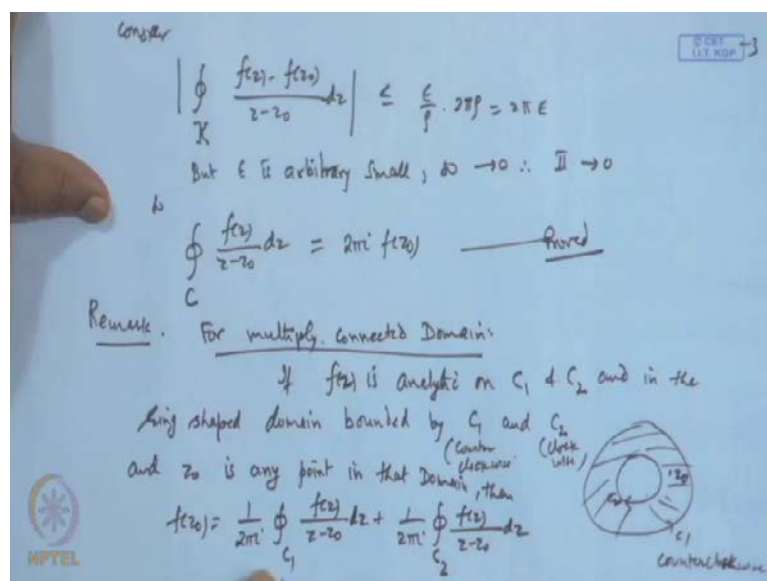 Consider
© CET
I.I.T. KGP
-3
| ∮ f(z) - f(z₀) / z - z₀ dz | ≤ ε/ρ · 2πρ = 2πε
K
But ε is arbitrary small, so → 0 ∴ II → 0
so
∮ f(z) / z - z₀ dz = 2πi f(z₀) ——— Proved
C
Remark. For multiply connected Domain:
If f(z) is analytic on C₁ & C₂ and in the
ring shaped domain bounded by C₁ and C₂
(Counter clockwise) (Clock wise)
and z₀ is any point in that Domain, then
f(z₀) = 1/2πi ∮ f(z) / z - z₀ dz + 1/2πi ∮ f(z) / z - z₀ dz
C₁ C₂
z₀
C₂
C₁
Counterclockwise
NPTEL